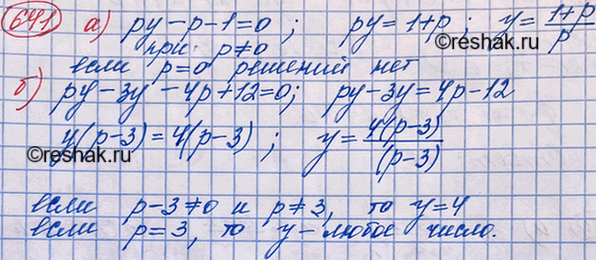 641 а) py-p-1=0 ; py=1+p ; y=\frac{1+p}{p}
при p≠0
если p=0 решений нет
© reshak.ru
б) py-3y-4p+12=0; py-3y=4p-12
© reshak.ru
y(p-3)=4(p-3) ; y=\frac{4(p-3)}{(p-3)}
если p-3≠0 и p≠3, то y=4
если p=3, то y-любое число.